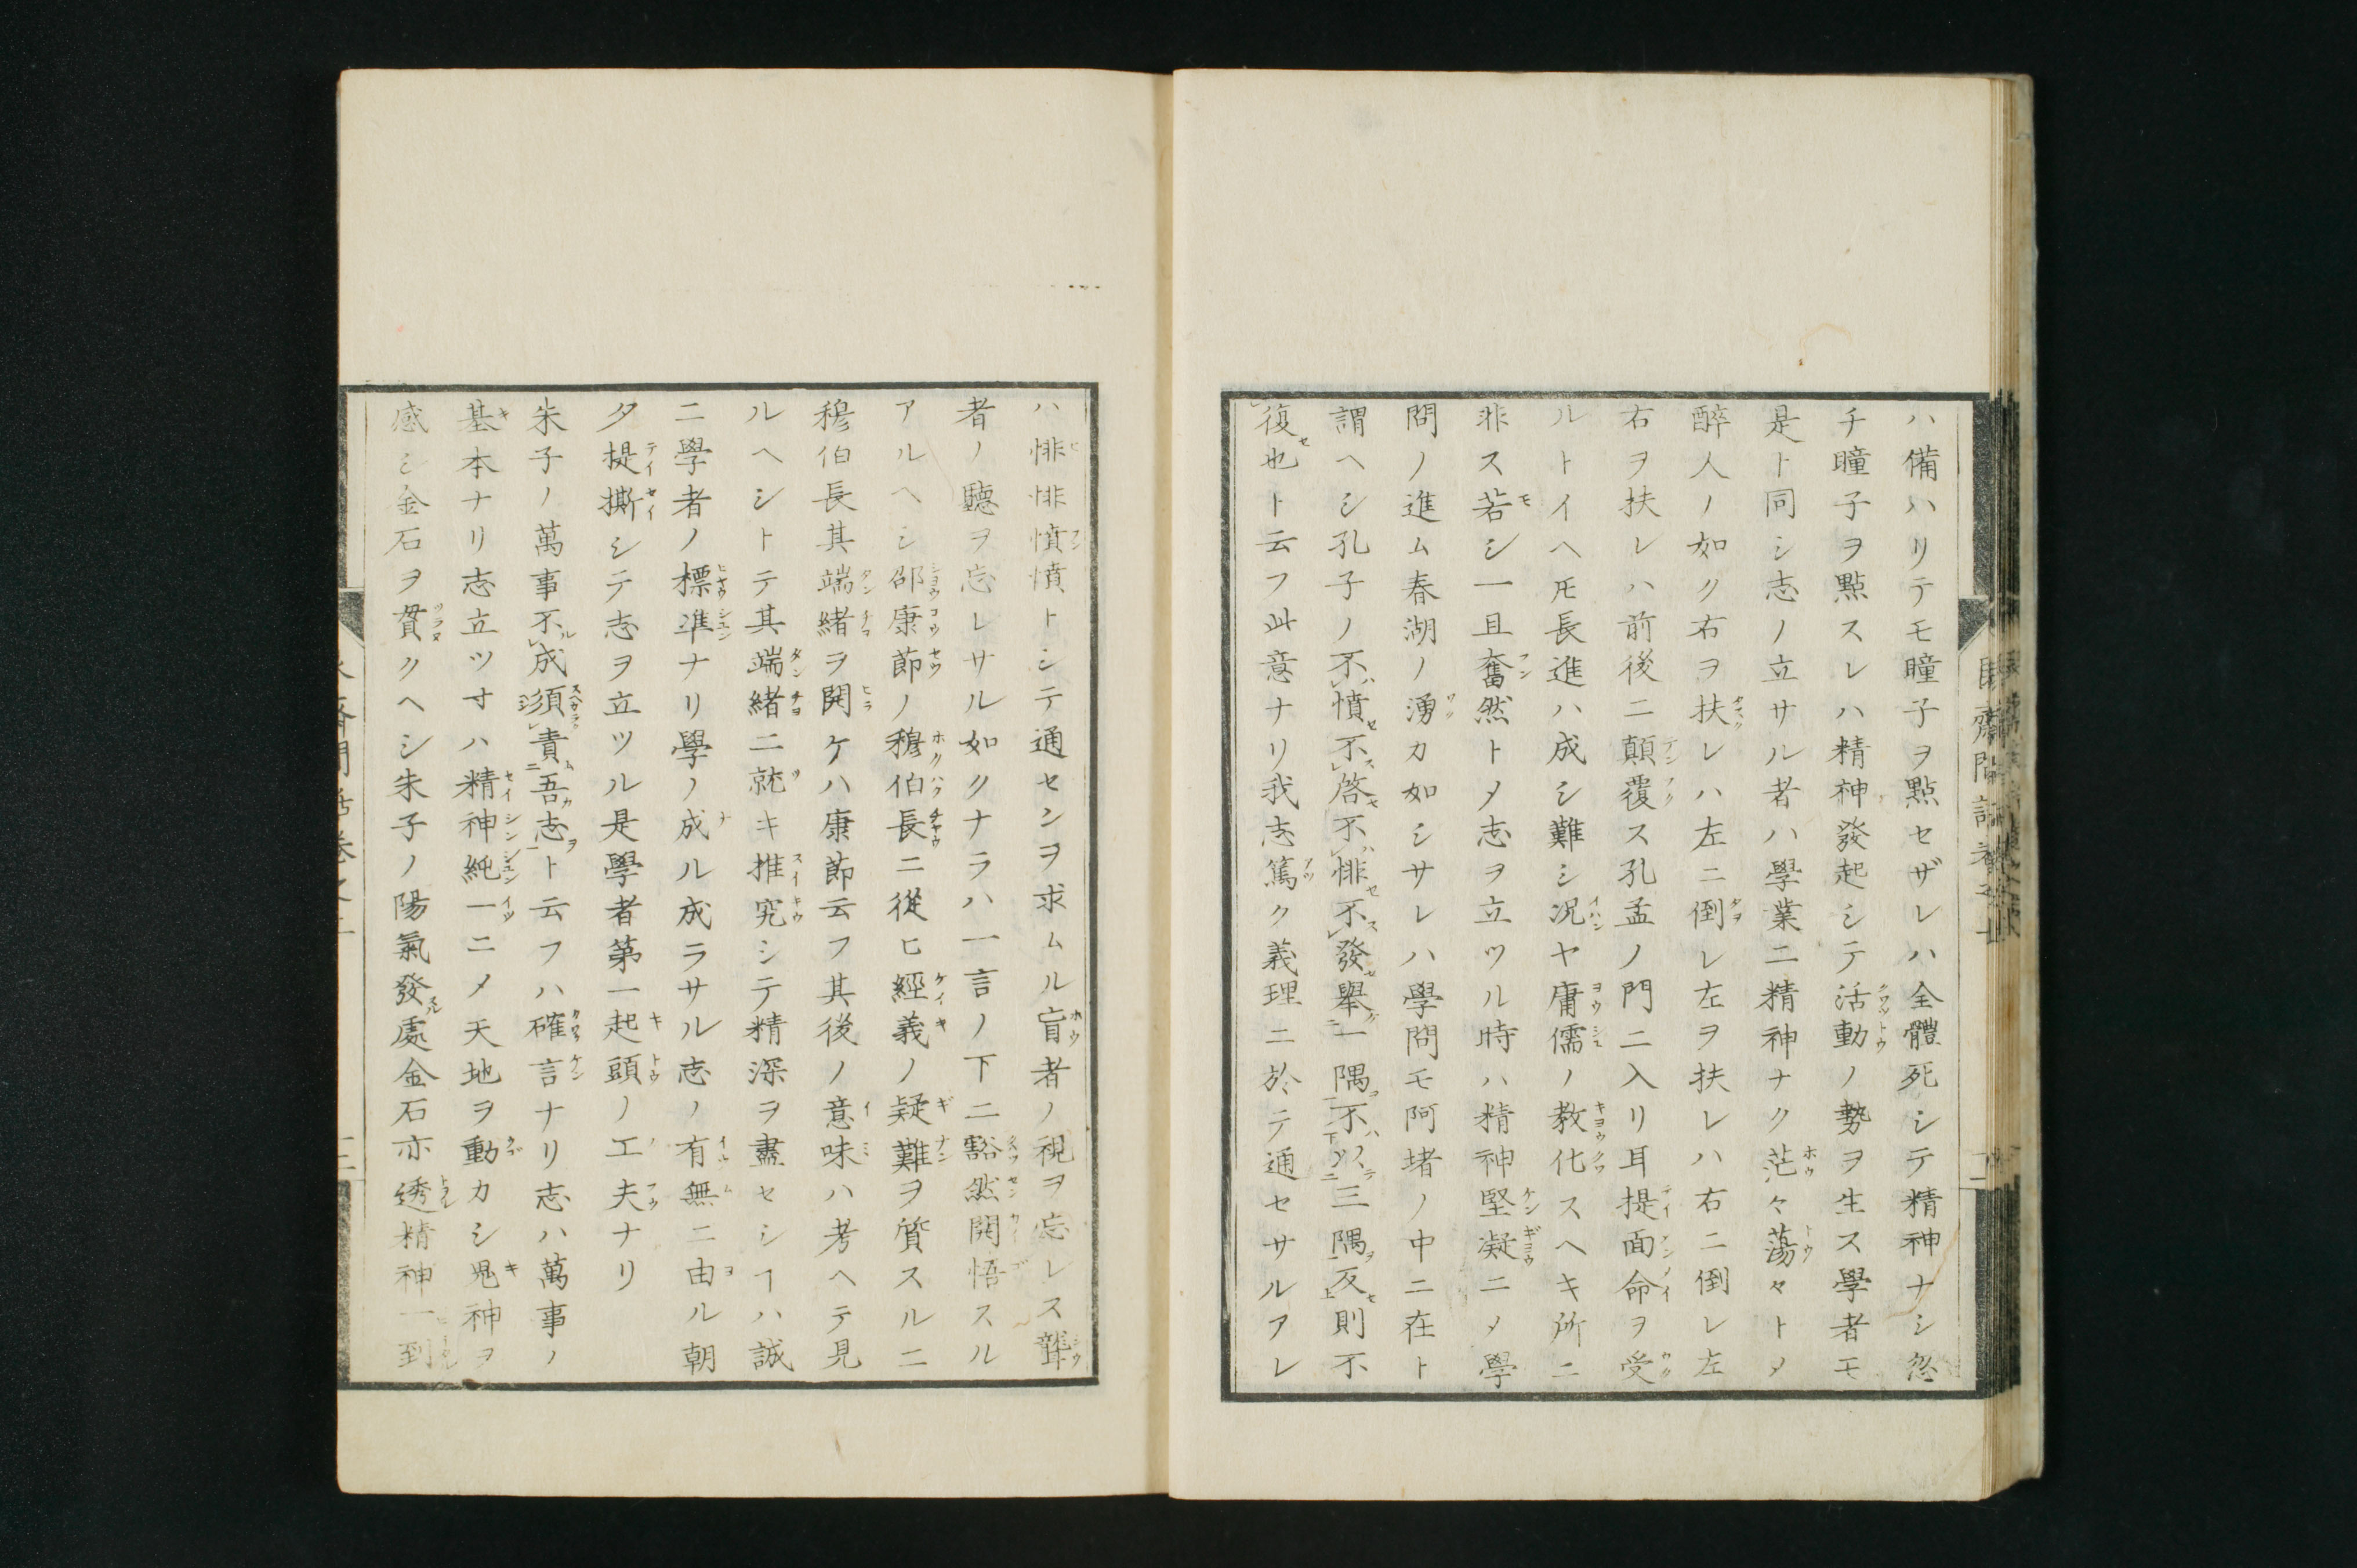 ハ備ハリテモ瞳子ヲ點セザレハ全體死シテ精神ナシ忽
チ瞳子ヲ點スレハ精神發起シテ活動ノ勢ヲ生ス學者モ
是ト同シ志ノ立サル者ハ學業ニ精神ナク茫々蕩々トメ
醉人ノ如ク右ヲ扶レハ左ニ倒レ左ヲ扶レハ右ニ倒レ左
右ヲ扶レハ前後ニ顛覆ス孔孟ノ門ニ入リ耳提面命ヲ受
ルトイヘ𪜈長進ハ成シ難シ况ヤ庸儒ノ教化スヘキ所ニ
非ス若シ一旦奮然トメ志ヲ立ツル時ハ精神堅凝ニメ學
問ノ進ム春湖ノ湧カ如シサレハ學問モ阿堵ノ中ニ在ト
謂ヘシ孔子ノ不憤不啓不悱不發舉一隅不以三隅反則不
復也ト云フ此意ナリ我志篤ク義理ニ於テ通セサルアレ
ハ悱悱憤憤トシテ通センヲ求ムル盲者ノ視ヲ忘レス聾
者ノ聽ヲ忘レサル如クナラハ一言ノ下ニ豁然開悟スル
アルヘシ邵康節ノ穆伯長ニ從ヒ經義ノ疑難ヲ質スルニ
穆伯長其端緒ヲ開ケハ康節云フ其後ノ意味ハ考ヘテ見
ルヘシトテ其端緒ニ就キ推究シテ精深ヲ盡セシヿハ誠
ニ學者ノ標準ナリ學ノ成ル成ラサル志ノ有無ニ由ル朝
夕提撕シテ志ヲ立ツル是學者第一起頭ノ工夫ナリ
朱子ノ萬事不成須責吾志ト云フハ確言ナリ志ハ萬事ノ
基本ナリ志立ツ寸ハ精神純一ニメ天地ヲ動カシ鬼神ヲ
感シ金石ヲ貫クヘシ朱子ノ陽氣發處金石亦透精神一到